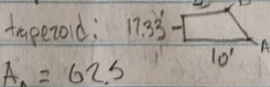 traperoid: 17.33' A
10'
A = 62.5